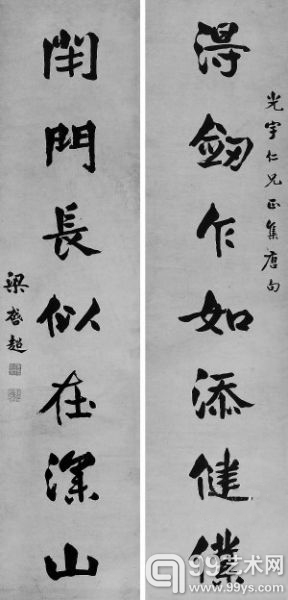 光宇仁兄正集唐句
得劒乍如添健僕
閉門長似在深山
梁啓超
99艺术网
www.99ys.com